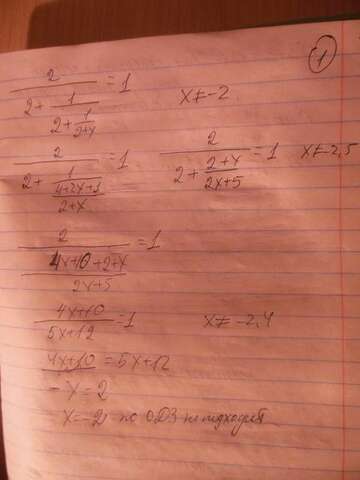 1
2/(2+1/(2+1/(2+x))) = 1 x≠-2
2/(2+1/((4+2x+1)/(2+x))) = 1 2/(2+(2+x)/(2x+5)) = 1 x≠-2,5
2/((4x+10+2+x)/(2x+5)) = 1
(4x+10)/(5x+12) = 1 x≠-2,4
4x+10 = 5x+12
-x = 2
x=-2 по ОДЗ не подходит